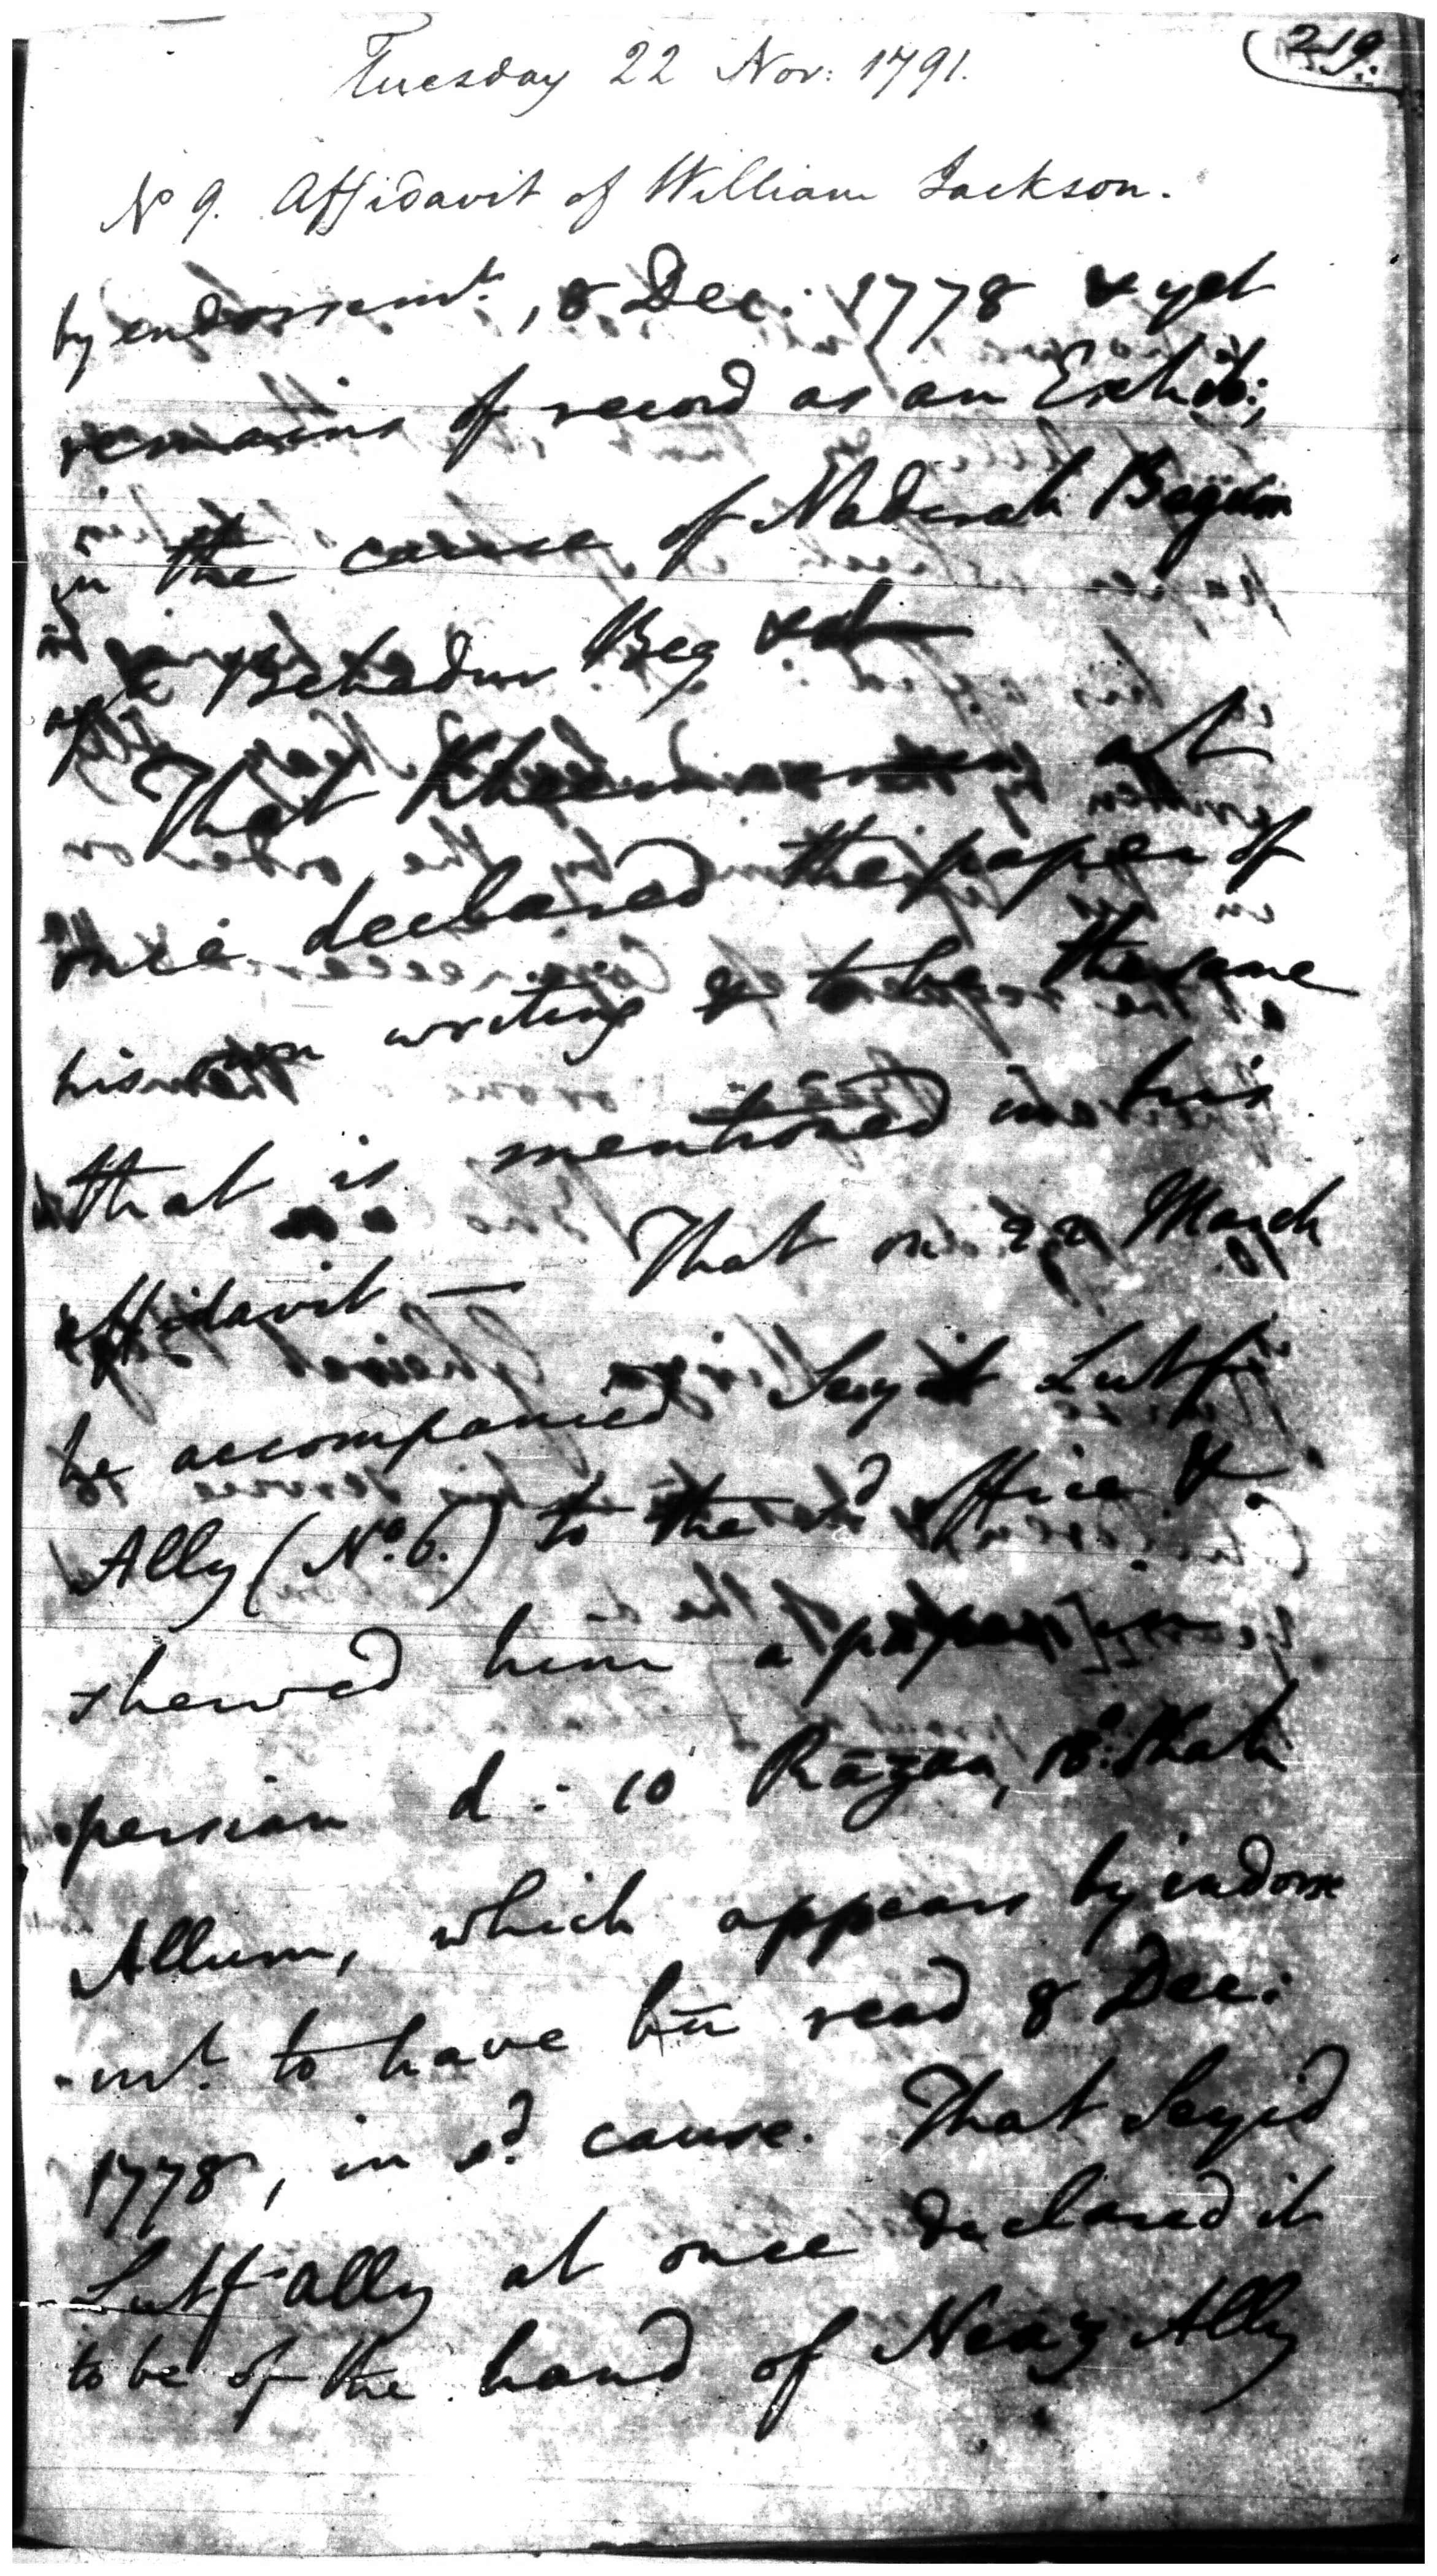 219.
Tuesday 22 Nov: 1791.
No 9. Affidavit of William Jackson.
by endorsemt., 8 Dec: 1778 & yet
remains of record as an Exhib:,
in the cause of Naderah Begum
agt Behadur Beg &
That at
once declared the paper of
his own writing & to be the same
that is mentioned in his
affidavit — That on 22 March
he accompanied Seyid Lutf
Ally (No. 6.) to the sd office &
shewed him a paper in
persian d: 10 Razan, 18: Shah
Allum, which appears by indorse
-mt. to have bn read 8 Dec:
1778, in sd. cause. That Seyid
Lutf Ally at once declared it
to be of the hand of Neaz Ally